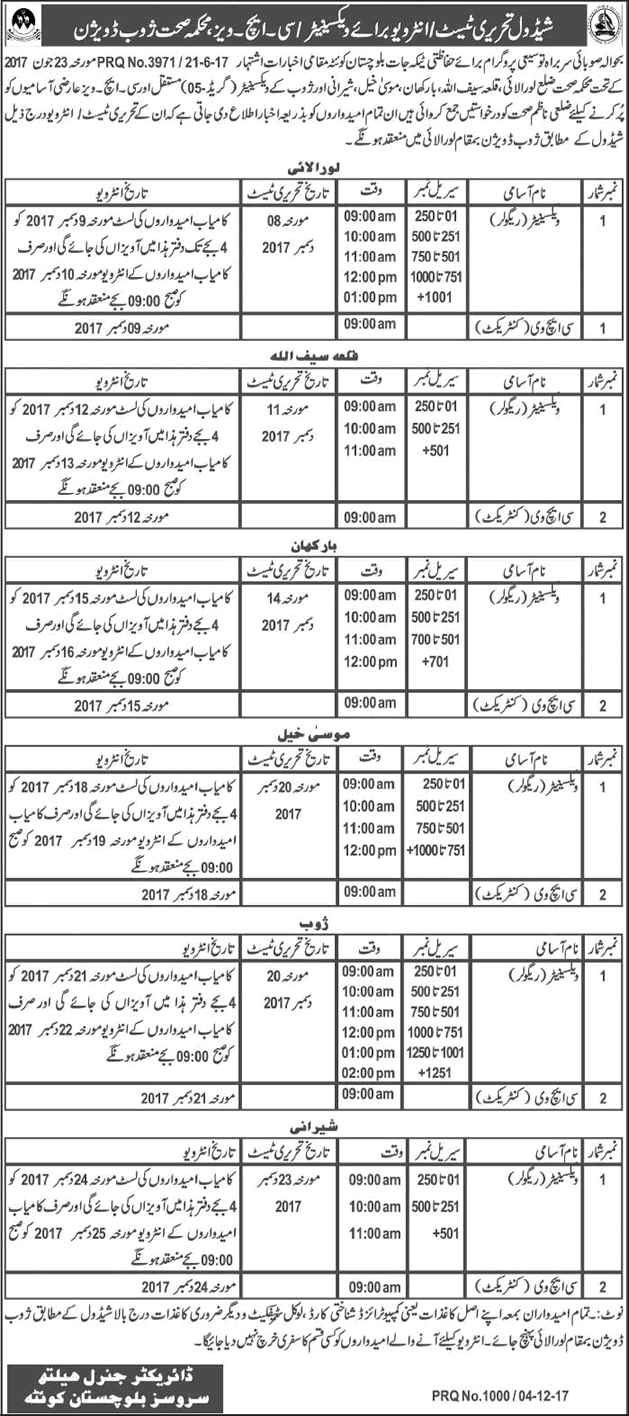 شیڈول تحریری ٹیسٹ/انٹرویو برائے ویکسینیٹر/سی۔ایچ۔ویز، محکمہ صحت ژوب ڈویژن
بحوالہ صوبائی سربراہ توسیعی پروگرام برائے حفاظتی ٹیکہ جات بلوچستان کوئٹہ مقامی اخبارات اشتہار PRQ No.3971 / 21-6-17 مورخہ 23 جون 2017
کے تحت محکمہ صحت ضلع لورالائی، قلعہ سیف اللہ، بارکھان، موسیٰ خیل، شیرانی اور ژوب کے ویکسینیٹر (گریڈ-05) مستقل اور سی۔ایچ۔ویز عارضی آسامیوں کو
پر کرنے کیلئے ضلعی ناظم صحت کو درخواستیں جمع کروائی ہیں ان تمام امیدواروں کو بذریعہ اخبار اطلاع دی جاتی ہے کہ ان کے تحریری ٹیسٹ/انٹرویو درج ذیل
شیڈول کے مطابق ژوب ڈویژن بمقام لورالائی میں منعقد ہونگے۔
لورالائی
نمبر شمار نام آسامی سیریل نمبر وقت تاریخ تحریری ٹیسٹ تاریخ انٹرویو
1 ویکسینیٹر (ریگولر) 01 تا 250 09:00am مورخہ 08 کامیاب امیدواروں کی لسٹ مورخہ 9 دسمبر 2017 کو
251 تا 500 10:00am دسمبر 2017 4 بجے تک دفتر ہذا میں آویزاں کی جائے گی اور صرف
501 تا 750 11:00am کامیاب امیدواروں کے انٹرویو مورخہ 10 دسمبر 2017
751 تا 1000 12:00pm کو صبح 09:00 بجے منعقد ہونگے
1001+ 01:00pm
1 سی ایچ وی (کنٹریکٹ) 09:00am مورخہ 09 دسمبر 2017
قلعہ سیف اللہ
نمبر شمار نام آسامی سیریل نمبر وقت تاریخ تحریری ٹیسٹ تاریخ انٹرویو
1 ویکسینیٹر (ریگولر) 01 تا 250 09:00am مورخہ 11 کامیاب امیدواروں کی لسٹ مورخہ 12 دسمبر 2017 کو
251 تا 500 10:00am دسمبر 2017 4 بجے دفتر ہذا میں آویزاں کی جائے گی اور صرف
501+ 11:00am کامیاب امیدواروں کے انٹرویو مورخہ 13 دسمبر 2017
کو صبح 09:00 بجے منعقد ہونگے
2 سی ایچ وی (کنٹریکٹ) 09:00am مورخہ 12 دسمبر 2017
بارکھان
نمبر شمار نام آسامی سیریل نمبر وقت تاریخ تحریری ٹیسٹ تاریخ انٹرویو
1 ویکسینیٹر (ریگولر) 01 تا 250 09:00am مورخہ 14 کامیاب امیدواروں کی لسٹ مورخہ 15 دسمبر 2017 کو
251 تا 500 10:00am دسمبر 2017 4 بجے دفتر ہذا میں آویزاں کی جائے گی اور صرف
501 تا 700 11:00am کامیاب امیدواروں کے انٹرویو مورخہ 16 دسمبر 2017
701+ 12:00pm کو صبح 09:00 بجے منعقد ہونگے
2 سی ایچ وی (کنٹریکٹ) 09:00am مورخہ 15 دسمبر 2017
موسیٰ خیل
نمبر شمار نام آسامی سیریل نمبر وقت تاریخ تحریری ٹیسٹ تاریخ انٹرویو
1 ویکسینیٹر (ریگولر) 01 تا 250 09:00am مورخہ 20 دسمبر کامیاب امیدواروں کی لسٹ مورخہ 18 دسمبر 2017 کو
251 تا 500 10:00am 2017 4 بجے دفتر ہذا میں آویزاں کی جائے گی اور صرف کامیاب
501 تا 750 11:00am امیدواروں کے انٹرویو مورخہ 19 دسمبر 2017 کو صبح
751 تا 1000+ 12:00pm 09:00 بجے منعقد ہونگے
2 سی ایچ وی (کنٹریکٹ) 09:00am مورخہ 18 دسمبر 2017
ژوب
نمبر شمار نام آسامی سیریل نمبر وقت تاریخ تحریری ٹیسٹ تاریخ انٹرویو
1 ویکسینیٹر (ریگولر) 01 تا 250 09:00am مورخہ 20 کامیاب امیدواروں کی لسٹ مورخہ 21 دسمبر 2017 کو
251 تا 500 10:00am دسمبر 2017 4 بجے دفتر ہذا میں آویزاں کی جائے گی اور صرف
501 تا 750 11:00am کامیاب امیدواروں کے انٹرویو مورخہ 22 دسمبر 2017
751 تا 1000 12:00pm کو صبح 09:00 بجے منعقد ہونگے
1001 تا 1250 01:00pm
1251+ 02:00pm
2 سی ایچ وی (کنٹریکٹ) 09:00am مورخہ 21 دسمبر 2017
شیرانی
نمبر شمار نام آسامی سیریل نمبر وقت تاریخ تحریری ٹیسٹ تاریخ انٹرویو
1 ویکسینیٹر (ریگولر) 01 تا 250 09:00am مورخہ 23 دسمبر کامیاب امیدواروں کی لسٹ مورخہ 24 دسمبر 2017 کو
251 تا 500 10:00am 2017 4 بجے دفتر ہذا میں آویزاں کی جائے گی اور صرف کامیاب
501+ 11:00am امیدواروں کے انٹرویو مورخہ 25 دسمبر 2017 کو صبح
09:00 بجے منعقد ہونگے
2 سی ایچ وی (کنٹریکٹ) 09:00am مورخہ 24 دسمبر 2017
نوٹ:۔ تمام امیدواران بمعہ اپنے اصل کاغذات یعنی کمپیوٹرائزڈ شناختی کارڈ، لوکل سرٹیفکیٹ و دیگر ضروری کاغذات درج بالا شیڈول کے مطابق ژوب
ڈویژن بمقام لورالائی پہنچ جائے۔ انٹرویو کیلئے آنے والے امیدواروں کو کسی قسم کا سفری خرچ نہیں دیا جائیگا۔
ڈائریکٹر جنرل ہیلتھ
سروسز بلوچستان کوئٹہ
PRQ No.1000 / 04-12-17